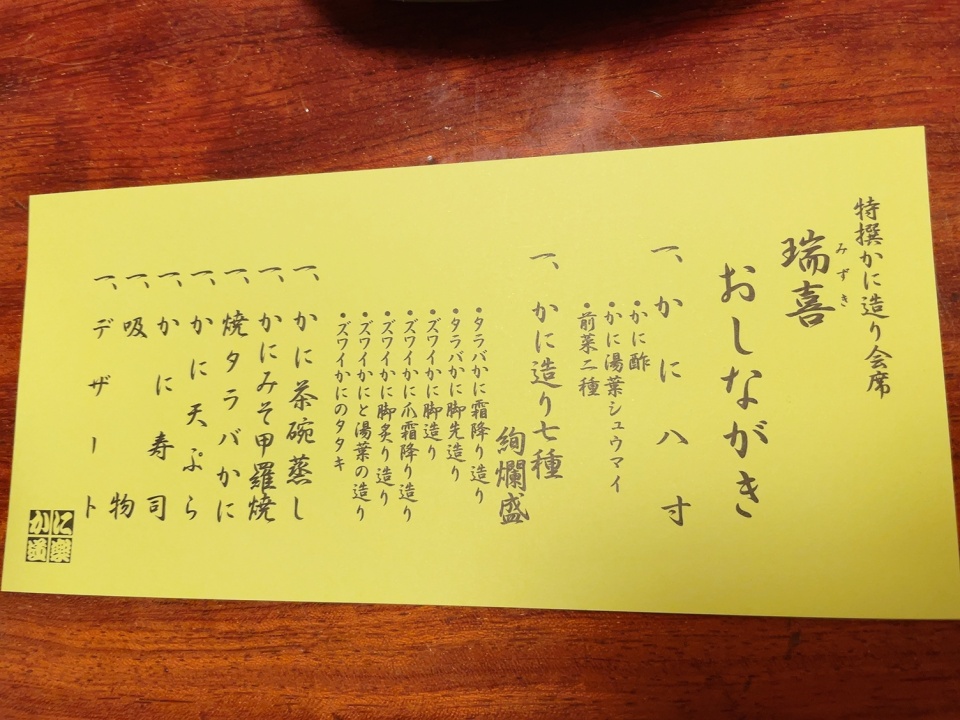 特撰かに造り会席
瑞喜
みずき
おしながき
一、かに八寸
・かに酢
・かに湯葉シュウマイ
・前菜二種
一、かに造り七種
絢爛盛
・タラバかに霜降り造り
・タラバかに脚先造り
・ズワイかに脚造り
・ズワイかに爪霜降り造り
・ズワイかに脚炙り造り
・ズワイかにと湯葉の造り
・ズワイかにのタタキ
一、かに茶碗蒸し
一、かにみそ甲羅焼
一、焼タラバかに
一、かに天ぷら
一、かに寿司
一、吸物
一、デザート
かに道楽